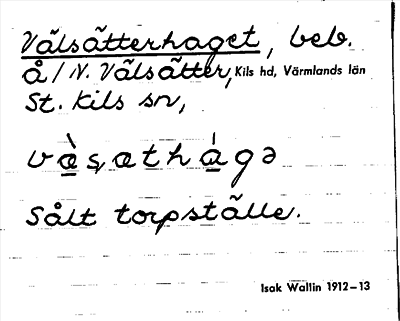 Välsätterhaget, beb.
å/N. Välsätter, Kils hd, Värmlands län
St. Kils sn,
våsathåga
Sålt torpställe.
Isak Wallin 1912–13